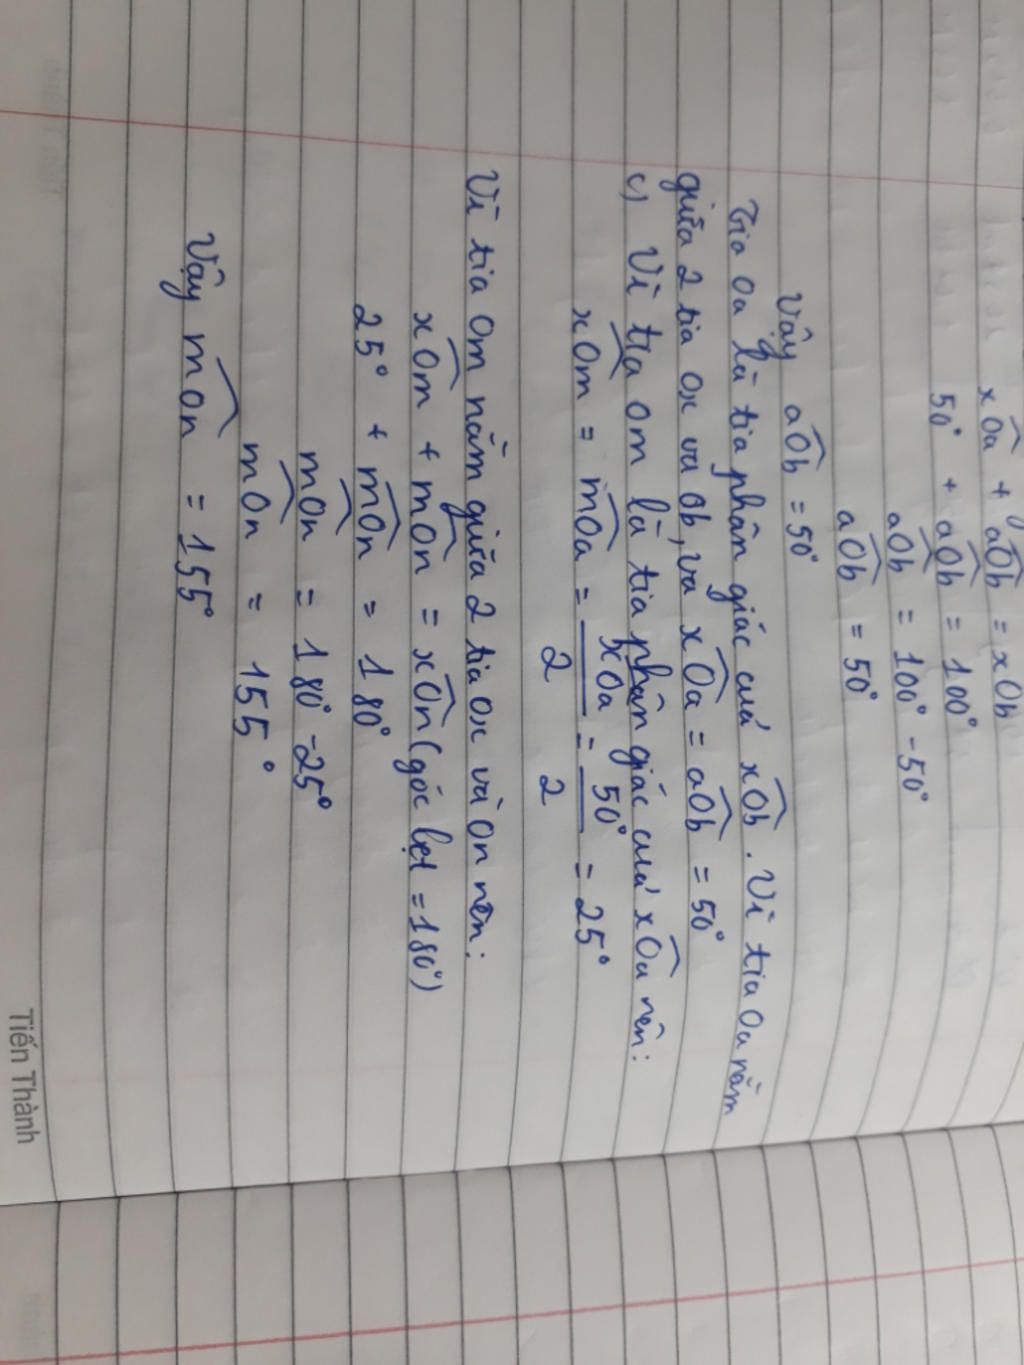 xOa + aOb = xOb
50° + aOb = 100°
aOb = 100° - 50°
aOb = 50°
Vậy aOb = 50°
Tia Oa là tia phân giác cuả xOb. Vì tia Oa nằm
giữa 2 tia Ox và Ob, và xOa = aOb = 50°
c) Vì tia Om là tia phân giác cuả xOa nên:
xOm = mOa = xOa/2 = 50°/2 = 25°
Vì tia Om nằm giữa 2 tia Ox và On nên:
xOm + mOn = xOn (góc bẹt = 180°)
25° + mOn = 180°
mOn = 180° - 25°
mOn = 155°
Vậy mOn = 155°
Tiến Thành